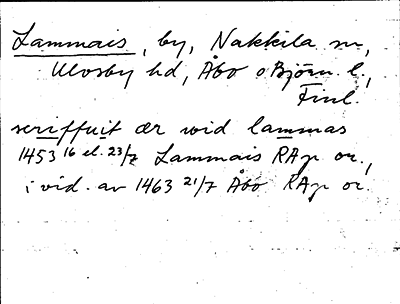 Lammais, by, Nakkila sn,
Ulvsby hd, Åbo o Björn. l.,
Finl.
scriffuit ær wid lammas
1453 16 el. 23/7 Lammais RAp or.,
i vid. av 1463 21/7 Åbo RAp or.